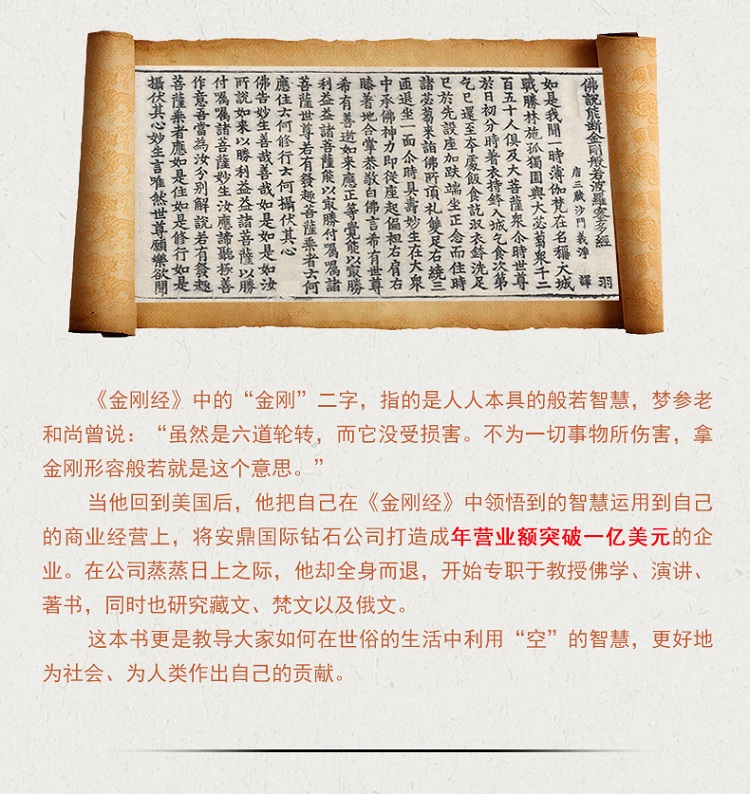 佛說能斷金剛般若波羅蜜多經 羽
唐三藏沙門義淨 譯
如是我聞一時薄伽梵在名稱大城
戰勝林施孤獨園與大苾芻眾千二
百五十人俱及大菩薩眾尒時世尊
於日初分時著衣持鉢入城乞食次第
乞已還至本處飯食訖収衣鉢洗足
已於先設座加趺端坐正念而住時
諸苾芻來詣佛所頂礼雙足右繞三
匝退坐一面尒時具壽妙生在大眾
中承佛神力即從座起偏袒右肩右
膝著地合掌恭敬白佛言希有世尊
希有善逝如來應正等覺能以最勝
利益益諸菩薩能以最勝付囑囑諸
菩薩世尊若有發趣菩薩乘者云何
應住云何修行云何攝伏其心
佛告妙生善哉善哉如是如是如汝
所說如來以勝利益益諸菩薩以勝
付囑囑諸菩薩妙生汝應諦聽極善
作意吾當為汝分別解說若有發趣
菩薩乘者應如是住如是修行如是
攝伏其心妙生言唯然世尊願樂欲聞
《金刚经》中的“金刚”二字，指的是人人本具的般若智慧，梦参老
和尚曾说：“虽然是六道轮转，而它没受损害。不为一切事物所伤害，拿
金刚形容般若就是这个意思。”
当他回到美国后，他把自己在《金刚经》中领悟到的智慧运用到自己
的商业经营上，将安鼎国际钻石公司打造成年营业额突破一亿美元的企
业。在公司蒸蒸日上之际，他却全身而退，开始专职于教授佛学、演讲、
著书，同时也研究藏文、梵文以及俄文。
这本书更是教导大家如何在世俗的生活中利用“空”的智慧，更好地
为社会、为人类作出自己的贡献。